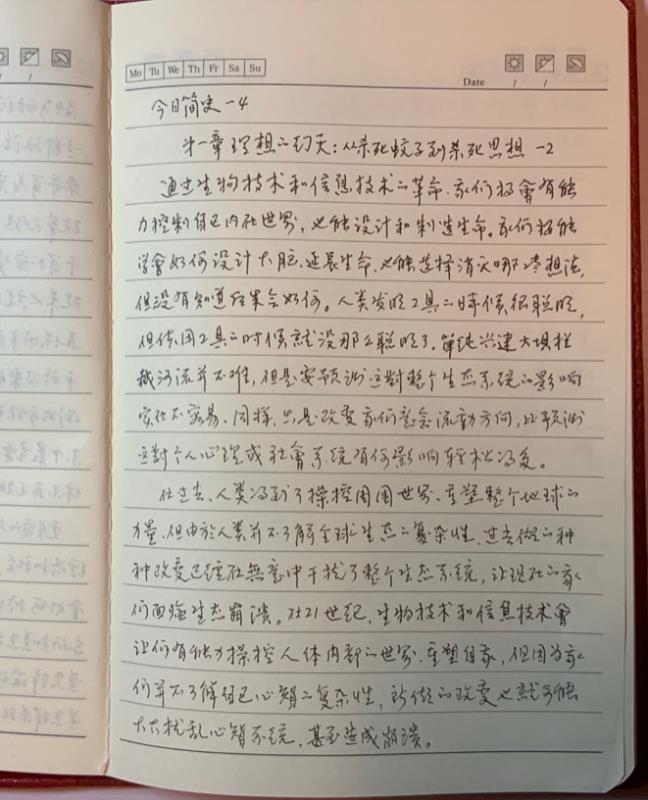 Mo Tu We Th Fr Sa Su
Date / /
今日简史-4
第一章 理想的幻灭:从杀死蚊子到杀死思想 -2
通过生物技术和信息技术的革命,我们将會有能
力控制自己内在世界,也能设计和制造生命。我们将能
学會如何设计大脑、延长生命,也能选择消灭哪些想法,
但没有知道后果会如何。人类发明工具的时候很聪明,
但使用工具的时候就没那么聪明了。单纯兴建大坝拦
截河流并不难,但是要预测这對整个生态系统的影响
实在不容易。同样,光是改变我们意念流動方向,比预测
这對个人心理或社會系统有何影响轻松得多。
在过去,人类得到了操控周围世界、重塑整个地球的
力量,但由於人类并不了解全球生态的复杂性,过去做的种
种改变已经在無意中干扰了整个生态系统,让现在的我
们面临生态崩溃。在21世纪,生物技术和信息技术會
让们有能力操控人体内部的世界、重塑自我,但因为我
们并不了解自己心智的复杂性,所做的改变也就可能
大大扰乱心智系统,甚至造成崩溃。